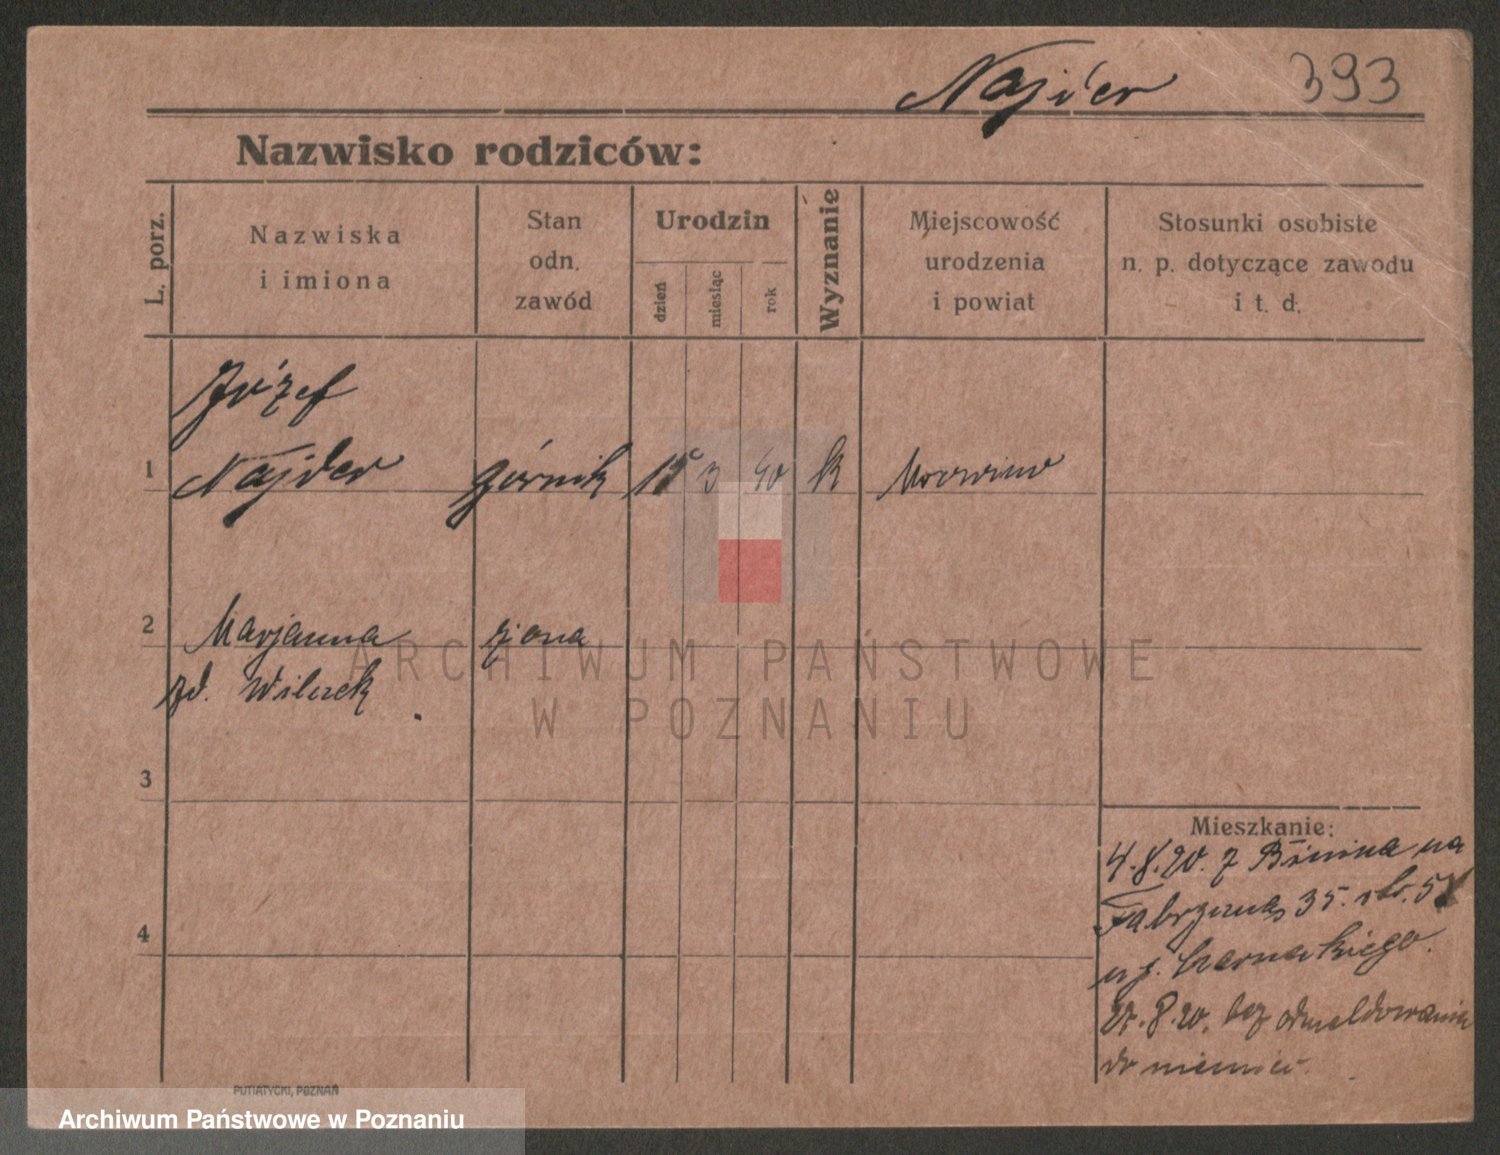 Najder 393
Nazwisko rodziców:
L. porz.
Nazwiska
i imiona
Stan
odn.
zawód
Urodzin
dzień
miesiąc
rok
Wyznanie
Miejscowość
urodzenia
i powiat
Stosunki osobiste
n. p. dotyczące zawodu
i t. d.
Józef
1 Najder górnik 3 90 k Mrowino
2 Marjanna żona
zd. Wilczek
3
4
Mieszkanie:
4.8.20. z Bnina na
35.
u p. Czarnackiego.
.8.20. bez odmeldowania
do niemiec.
PUTIATYCKI, POZNAŃ
ARCHIWUM PAŃSTWOWE
W POZNANIU
Archiwum Państwowe w Poznaniu